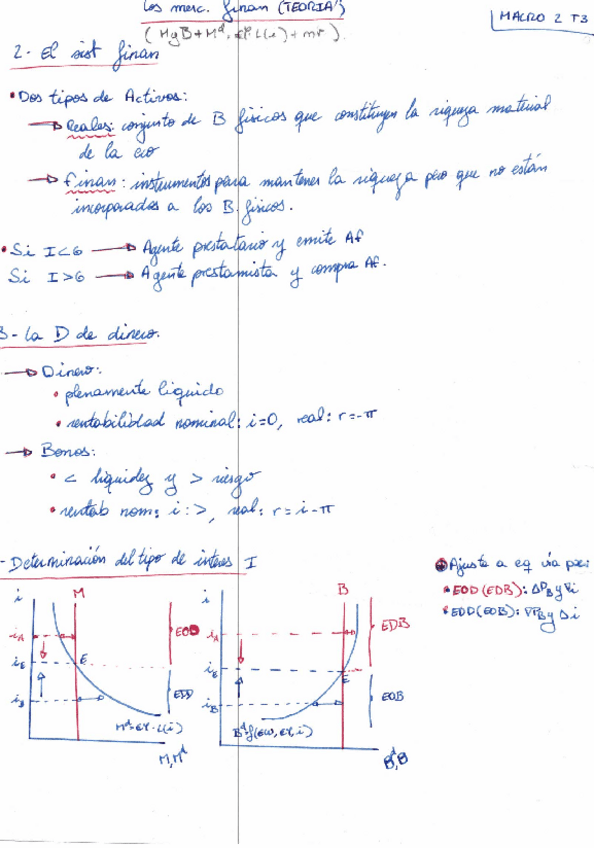 Los merc. finan (TEORÍA)
MACRO 2 T3
(MgB+Mᵈ, €Y·L(i)+mr).
2- El sist finan
• Dos tipos de Activos:
→ Reales: conjunto de B físicos que constituyen la riqueza material
de la eco
→ finan: instrumentos para mantener la riqueza pero que no están
incorporados a los B. físicos.
• Si I<G → Agente prestatario y emite Af
Si I>G → Agente prestamista y compra Af.
3- La D de dinero.
→ Dinero:
• plenamente líquido
• rentabilidad nominal: i=0, real: r=-π
→ Bonos:
• < liquidez y > riesgo
• rentab nom: i:>, real: r=i-π
- Determinación del tipo de interés I
Ajuste a eq vía pre:
• EOD(EDB): ΔP_B y ∇i
• EDD(EOB): ∇P_B y Δi
i M
i_A EOD
i_E E
i_B EDD
Mᵈ=€Y·L(i)
M,Mᵈ
i B
i_A EDB
i_E E
i_B EOB
Bᵈ=f(€W,€Y,i)
Bᵈ,B